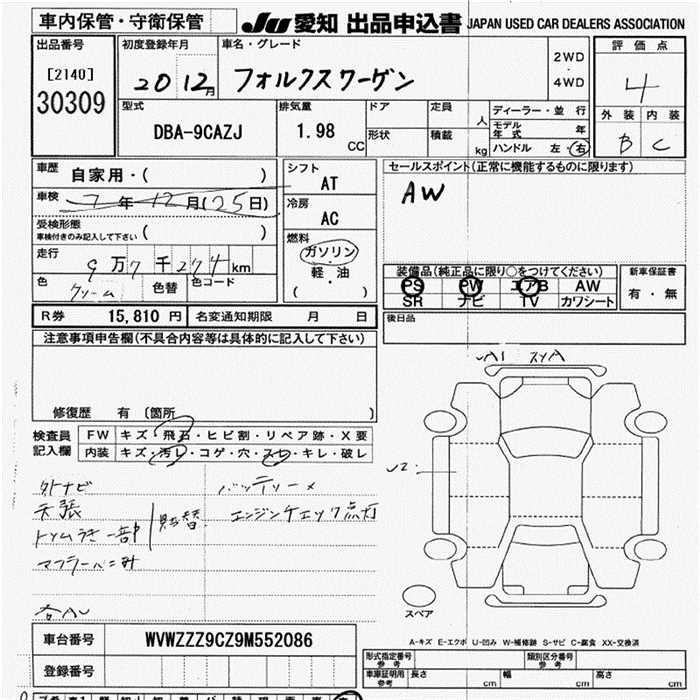 車内保管・守衛保管 JU 愛知 出品申込書 JAPAN USED CAR DEALERS ASSOCIATION
出品番号
[2140]
30309
初度登録年月
20 12月
車名・グレード
フォルクスワーゲン
2WD
・
4WD
評価点
4
外装 内装
B C
型式
DBA-9CAZJ
排気量
1.98
CC
ドア
形状
定員 人
積載 kg
ディーラー・並行
モデル年式 年
ハンドル 左・右
車歴 自家用・( )
車検 7年12月(25日)
受検形態
車検付きのみ記入して下さい ( )
走行 9万7千274km
色 クリーム 色替 色コード
シフト
AT
冷房
AC
燃料
ガソリン
軽・油
( )
セールスポイント(正常に機能するものに限ります)
AW
装備品(純正品に限り○をつけてください)
PS PW エアB AW
SR ナビ TV カワシート
新車保証書
有・無
R券 15,810 円 名変通知期限 月 日
後日品
注意事項申告欄(不具合内容等は具体的に記入して下さい)
修復歴 有 〔箇所 〕
検査員記入欄
FW キズ・飛石・ヒビ割・リペア跡・X要
内装 キズ・汚レ・コゲ・穴・スレ・キレ・破レ
外ナビ
天張
トリムうき一部 貼替
マフラー
バッテリー×
エンジンチェック点灯
A1
U2
スペア
A-キズ E-エクボ U-凹み W-補修跡 S-サビ C-腐食 XX-交換済
車台番号 WVWZZZ9CZ9M552086
登録番号
形式指定番号
参考
類別区分番号
参考
車庫証明用
参考
長さ cm 幅 cm 高さ cm